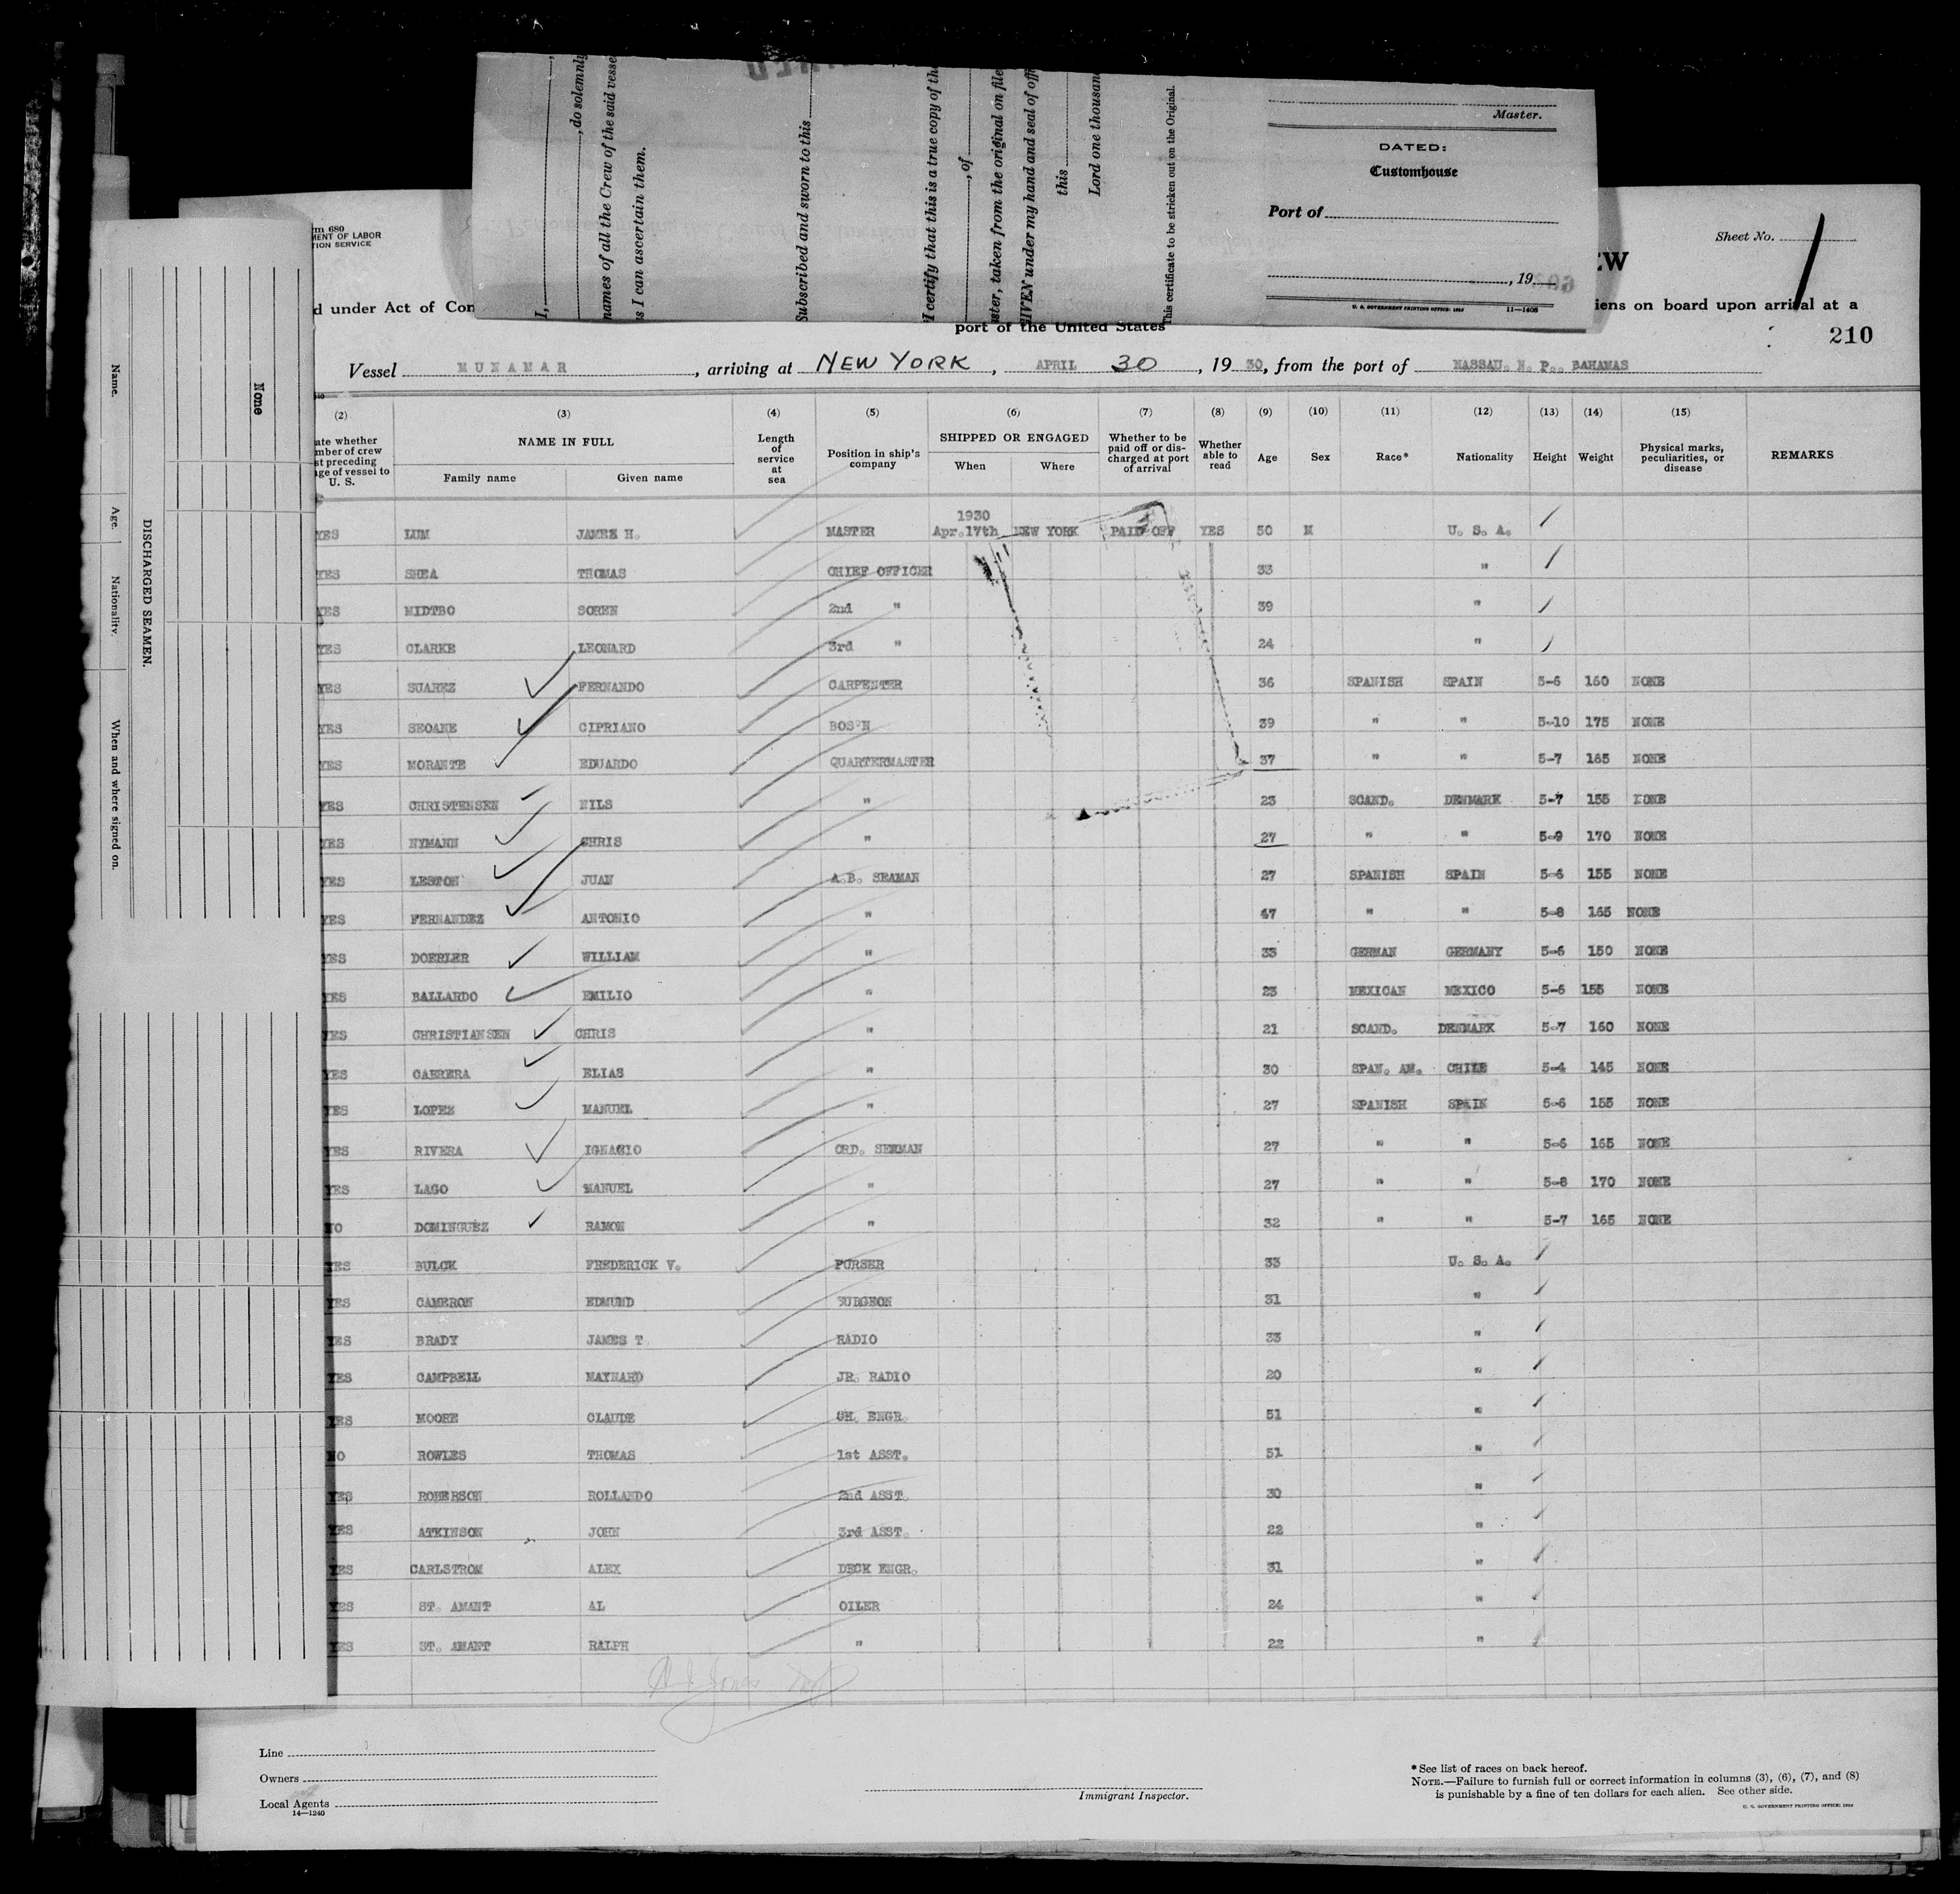 I,
, do solemnly
names of all the Crew of the said vesse
s I can ascertain them.
Subscribed and sworn to this
I certify that this is a true copy of the
, of
ster, taken from the original on file
GIVEN under my hand and seal of offi
this
Lord one thousan
This certificate to be stricken out on the Original.
Master.
DATED:
Customhouse
Port of
, 19
U. S. GOVERNMENT PRINTING OFFICE: 1929 11—1408
rm 680
MENT OF LABOR
TION SERVICE
Sheet No. 1
EW
d under Act of Con
iens on board upon arrival at a
port of the United States
210
Vessel MUNAMAR, arriving at NEW YORK, APRIL 30, 19 30, from the port of NASSAU. N. P., BAHAMAS
DISCHARGED SEAMEN.
Name. Age. Nationality. When and where signed on.
None
(2) (3) (4) (5) (6) (7) (8) (9) (10) (11) (12) (13) (14) (15)
ate whether
mber of crew
st preceding
age of vessel to
U. S.
NAME IN FULL
Family name Given name
Length
of
service
at
sea
Position in ship's
company
SHIPPED OR ENGAGED
When Where
Whether to be
paid off or dis-
charged at port
of arrival
Whether
able to
read
Age Sex Race* Nationality Height Weight
Physical marks,
peculiarities, or
disease
REMARKS
1930
YES LUM JAMES H. MASTER Apr.17th NEW YORK PAID OFF YES 50 M U. S. A.
YES SHEA THOMAS CHIEF OFFICER 33 "
YES MIDTBO SOREN 2nd " 39 "
YES CLARKE LEONARD 3rd " 24 "
YES SUAREZ FERNANDO CARPENTER 36 SPANISH SPAIN 5-6 160 NONE
YES SEOANE CIPRIANO BOS'N 39 " " 5-10 175 NONE
YES MORANTE EDUARDO QUARTERMASTER 37 " " 5-7 185 NONE
YES CHRISTENSEN NILS " 23 SCAND. DENMARK 5-7 155 NONE
YES NYMANN CHRIS " 27 " " 5-9 170 NONE
YES LESTON JUAN A.B. SEAMAN 27 SPANISH SPAIN 5-6 155 NONE
YES FERNANDEZ ANTONIO " 47 " " 5-8 165 NONE
YES DOERLER WILLIAM " 33 GERMAN GERMANY 5-6 150 NONE
YES BALLARDO EMILIO " 23 MEXICAN MEXICO 5-6 155 NONE
YES CHRISTIANSEN CHRIS " 21 SCAND. DENMARK 5-7 160 NONE
YES CABRERA ELIAS " 30 SPAN. AM. CHILE 5-4 145 NONE
YES LOPEZ MANUEL " 27 SPANISH SPAIN 5-6 155 NONE
YES RIVERA IGNACIO ORD. SEAMAN 27 " " 5-6 165 NONE
YES LAGO MANUEL " 27 " " 5-8 170 NONE
NO DOMINGUEZ RAMON " 32 " " 5-7 165 NONE
YES BULCK FREDERICK V. PURSER 33 U. S. A.
YES CAMERON EDMUND SURGEON 31 "
YES BRADY JAMES T RADIO 33 "
YES CAMPBELL MAYNARD JR. RADIO 20 "
YES MOORE CLAUDE CH. ENGR. 51 "
NO ROWLES THOMAS 1st ASST. 51 "
YES ROBERSON ROLLANDO 2nd ASST. 30 "
YES ATKINSON JOHN 3rd ASST. 22 "
YES CARLSTROM ALEX DECK ENGR. 31 "
YES ST. AMANT AL OILER 24 "
YES ST. AMANT RALPH " 22 "
Line
Owners
Local Agents
14—1240
Immigrant Inspector.
* See list of races on back hereof.
NOTE.—Failure to furnish full or correct information in columns (3), (6), (7), and (8)
is punishable by a fine of ten dollars for each alien. See other side.
U. S. GOVERNMENT PRINTING OFFICE: 1929